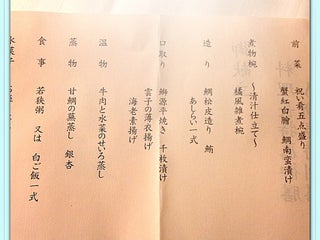 前菜 祝い肴五点盛り
蟹紅白膾 鯛南蛮漬け
煮物椀 〜清汁仕立て〜
橘風雑煮椀
造り 鯛松皮造り 鮪
あしらい一式
口取り 鰤源平焼き 千枚漬け
雲子の薄衣揚げ
海老素揚げ
温物 牛肉と水菜のせいろ蒸し
蒸物 甘鯛の蕪蒸し 銀杏
食事 若狭粥 又は 白ご飯一式
水菓子